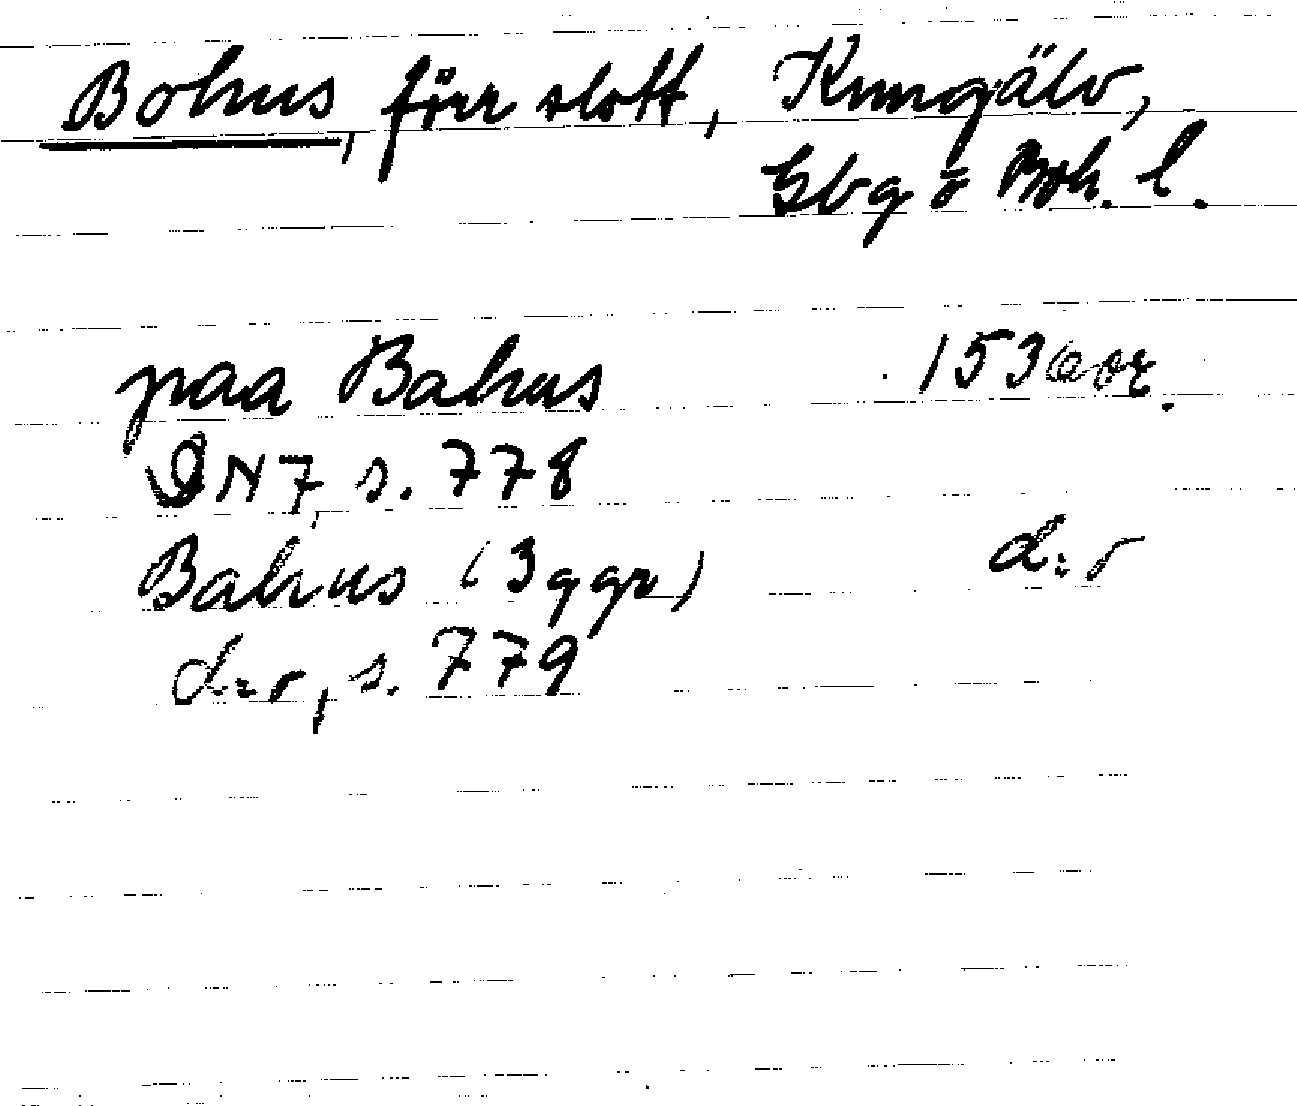 Bohus, förr slott, Kungälv,
Gbg o Boh. l.
paa Bahus 1530 or.
DN 7, s. 778
Bahus (3 ggr) d:o
d:o, s. 779